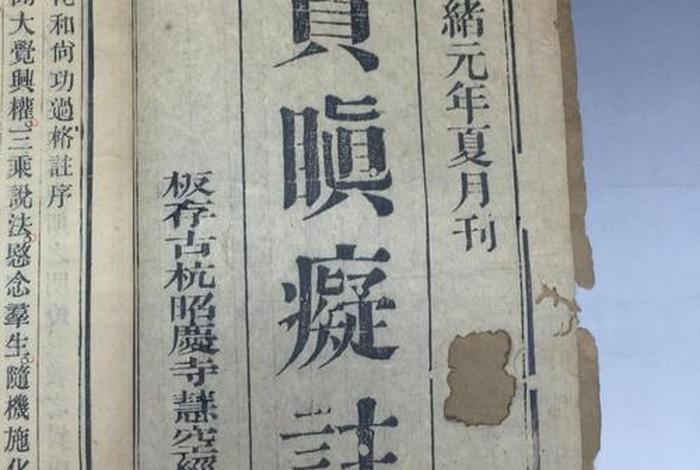 緒元年夏月刊
貪瞋癡註
板存古杭昭慶寺慧空經
和尚功過格註序
大覺興權三乘說法愍念羣生隨機施化